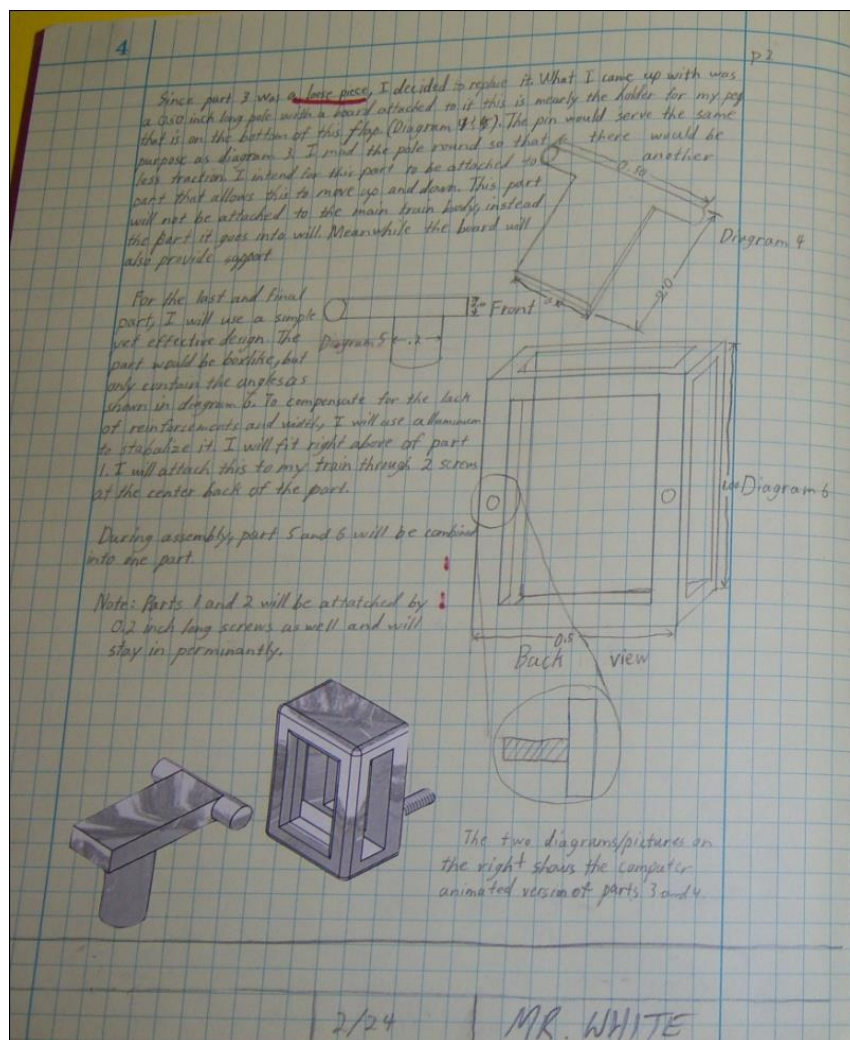 4
p2
Since part 3 was a loose piece, I decided to replace it. What I came up with was
a 0.50 inch long pole with a board attached to it this is mearly the holder for my peg
that is on the bottom of this flap. (Diagram 4 & 5). The pin would serve the same
purpose as diagram 3. I mad the pole round so that there would be
less traction. I intend for this part to be attached to another
part that allows this to move up and down. This part
will not be attached to the main train body, instead
the part it goes into will. Meanwhile the board will
also provide support
0.50
Diagram 4
For the last and final
part, I will use a simple
yet effective design. The
part would be boxlike, but
only contain the angles as
shown in diagram 6. To compensate for the lack
of reinforcements and width, I will use alluminum
to stabalize it. I will fit right above of part
1. I will attach this to my train through 2 screws
at the center back of the part.
Front
Diagram 5
.2
Diagram 6
During assembly, part 5 and 6 will be combined
into one part.
Note: Parts 1 and 2 will be attatched by
0.2 inch long screws as well and will
stay in perminantly.
0.5
Back view
The two diagrams/pictures on
the right shows the computer
animated version of parts 3 and 4.
2/24
MR. WHITE